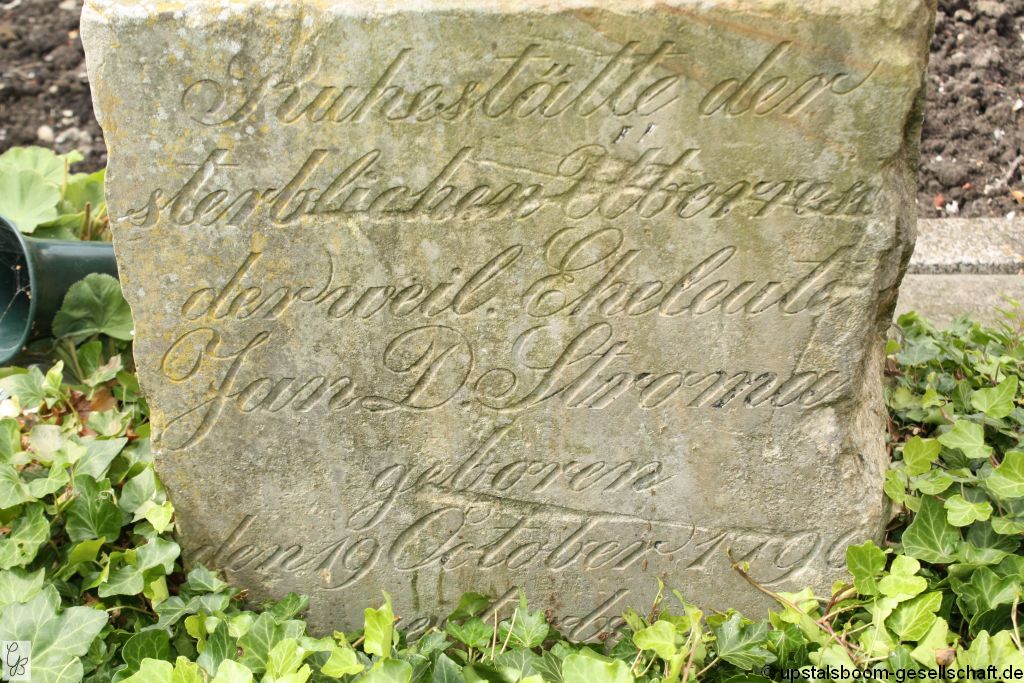 Ruhestätte der
sterblichen Überreste
der weil. Eheleute
Jan D. Stroma
geboren
den 19 October 179
© upstalsboom-gesellschaft.de
GB